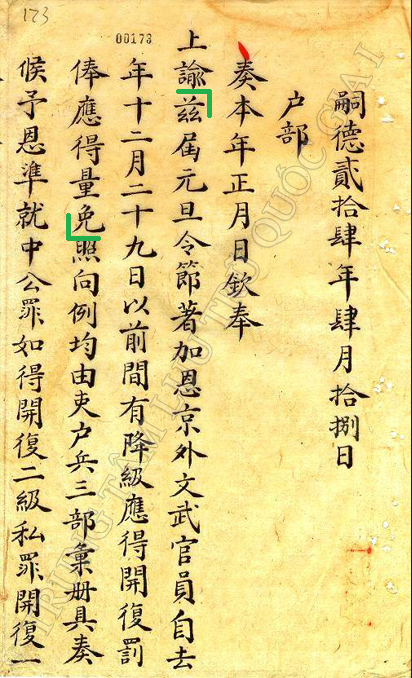 嗣德貳拾肆年肆月拾捌日
户部
奏本年正月日欽奉
上諭茲屆元旦令節著加恩京外文武官員自去
年十二月二十九日以前間有降級應得開復罰
俸應得量免照向例均由吏户兵三部彙册具奏
候予恩準就中公罪如得開復二級私罪開復一
173
00173
TRUNG TÂM LƯU TRỮ QUỐC GIA I